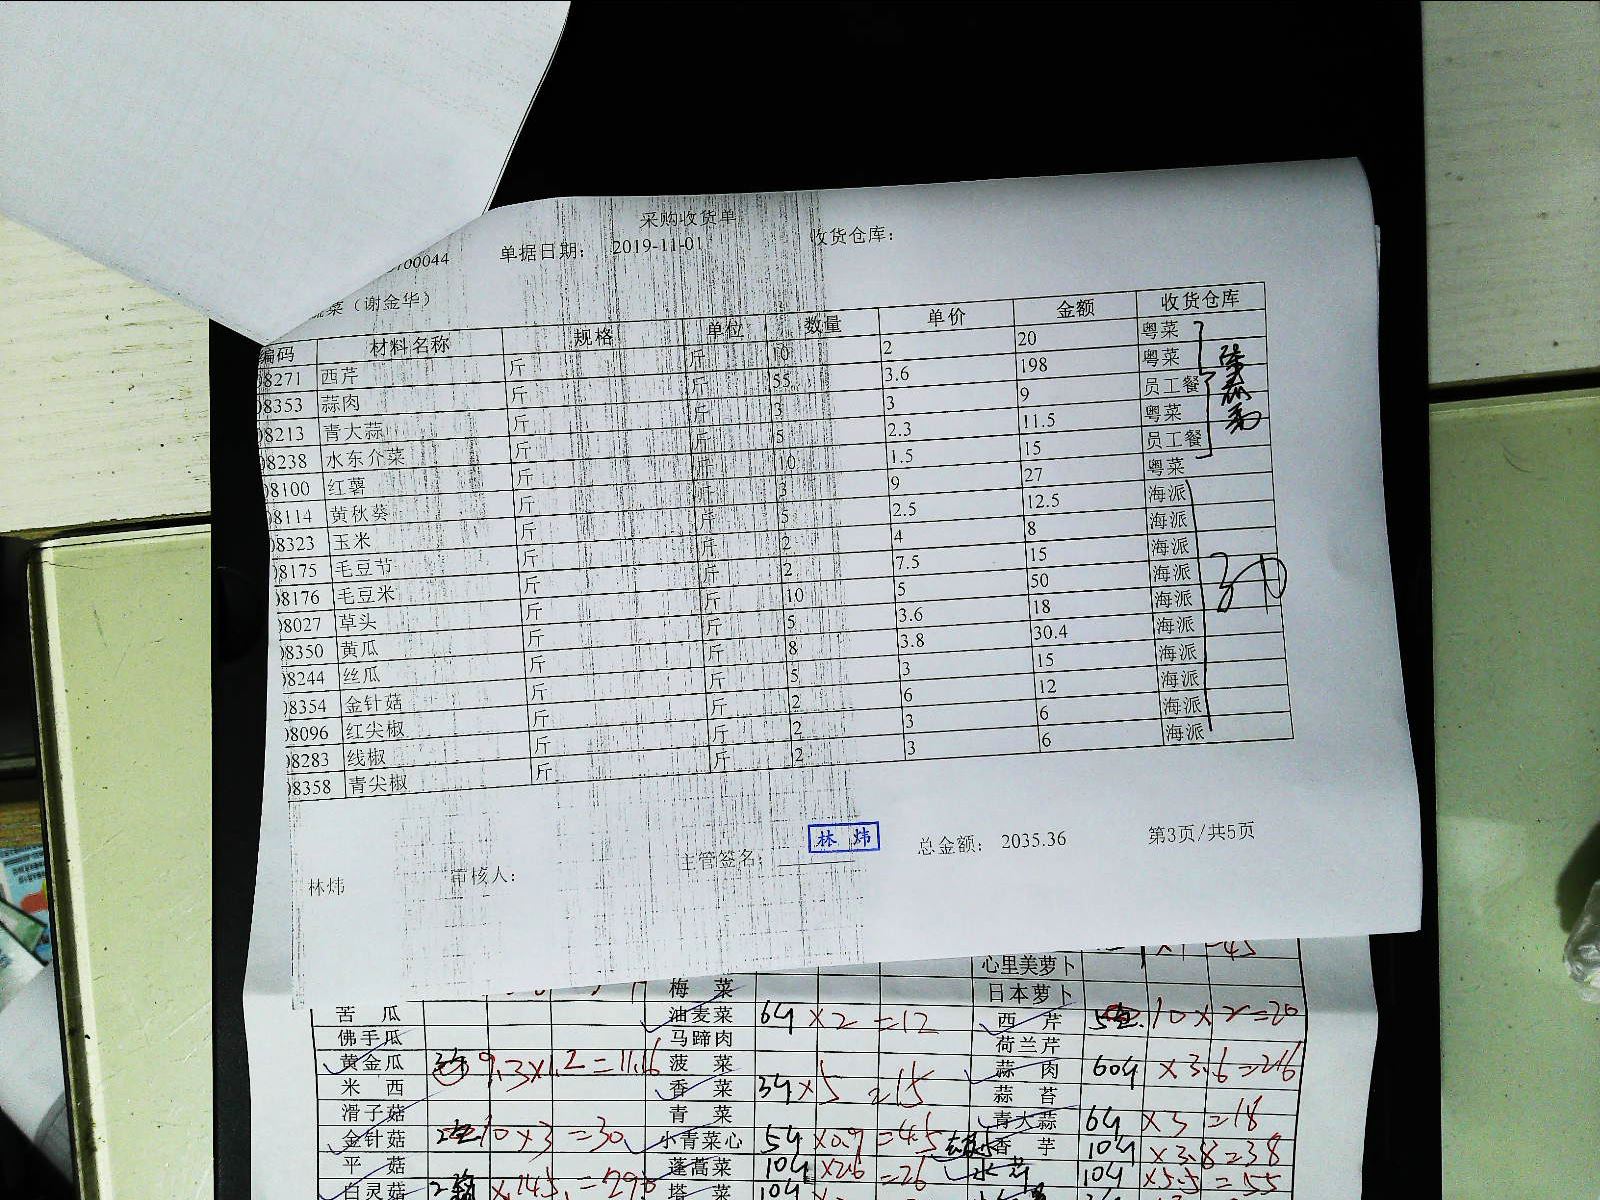 采购收货单
100044 单据日期： 2019-11-01 收货仓库：
菜（谢金华）
编码 材料名称 规格 单位 数量 单价 金额 收货仓库
08271 西芹 斤 斤 10 2 20 粤菜
08353 蒜肉 斤 斤 55 3.6 198 粤菜
08213 青大蒜 斤 斤 3 3 9 员工餐
08238 水东介菜 斤 斤 5 2.3 11.5 粤菜
08100 红薯 斤 斤 10 1.5 15 员工餐
08114 黄秋葵 斤 斤 3 9 27 粤菜
08323 玉米 斤 斤 5 2.5 12.5 海派
08175 毛豆节 斤 斤 2 4 8 海派
08176 毛豆米 斤 斤 2 7.5 15 海派
08027 草头 斤 斤 10 5 50 海派
08350 黄瓜 斤 斤 5 3.6 18 海派
08244 丝瓜 斤 斤 8 3.8 30.4 海派
08354 金针菇 斤 斤 5 3 15 海派
08096 红尖椒 斤 斤 2 6 12 海派
08283 线椒 斤 斤 2 3 6 海派
08358 青尖椒 斤 斤 2 3 6 海派
林炜 审核人： 主管签名： 林炜 总金额： 2035.36 第3页/共5页
心里美萝卜
梅菜 日本萝卜
苦瓜 油麦菜 6斤 ×2 =12 西芹 10×2=20
佛手瓜 马蹄肉 荷兰芹
黄金瓜 9.3×1.2=11.16 菠菜 蒜肉 60斤 ×3.6=216
米西 香菜 3斤 ×5 =15 蒜苔
滑子菇 青菜 青大蒜 6斤 ×3 =18
金针菇 10×3=30 小青菜心 5斤 ×0.9 =4.5 香芋 10斤 ×3.8=38
平菇 蓬蒿菜 10斤 ×2.6 =26 10斤 ×5.5=55
白灵菇 ×14.5 塔菜 10斤